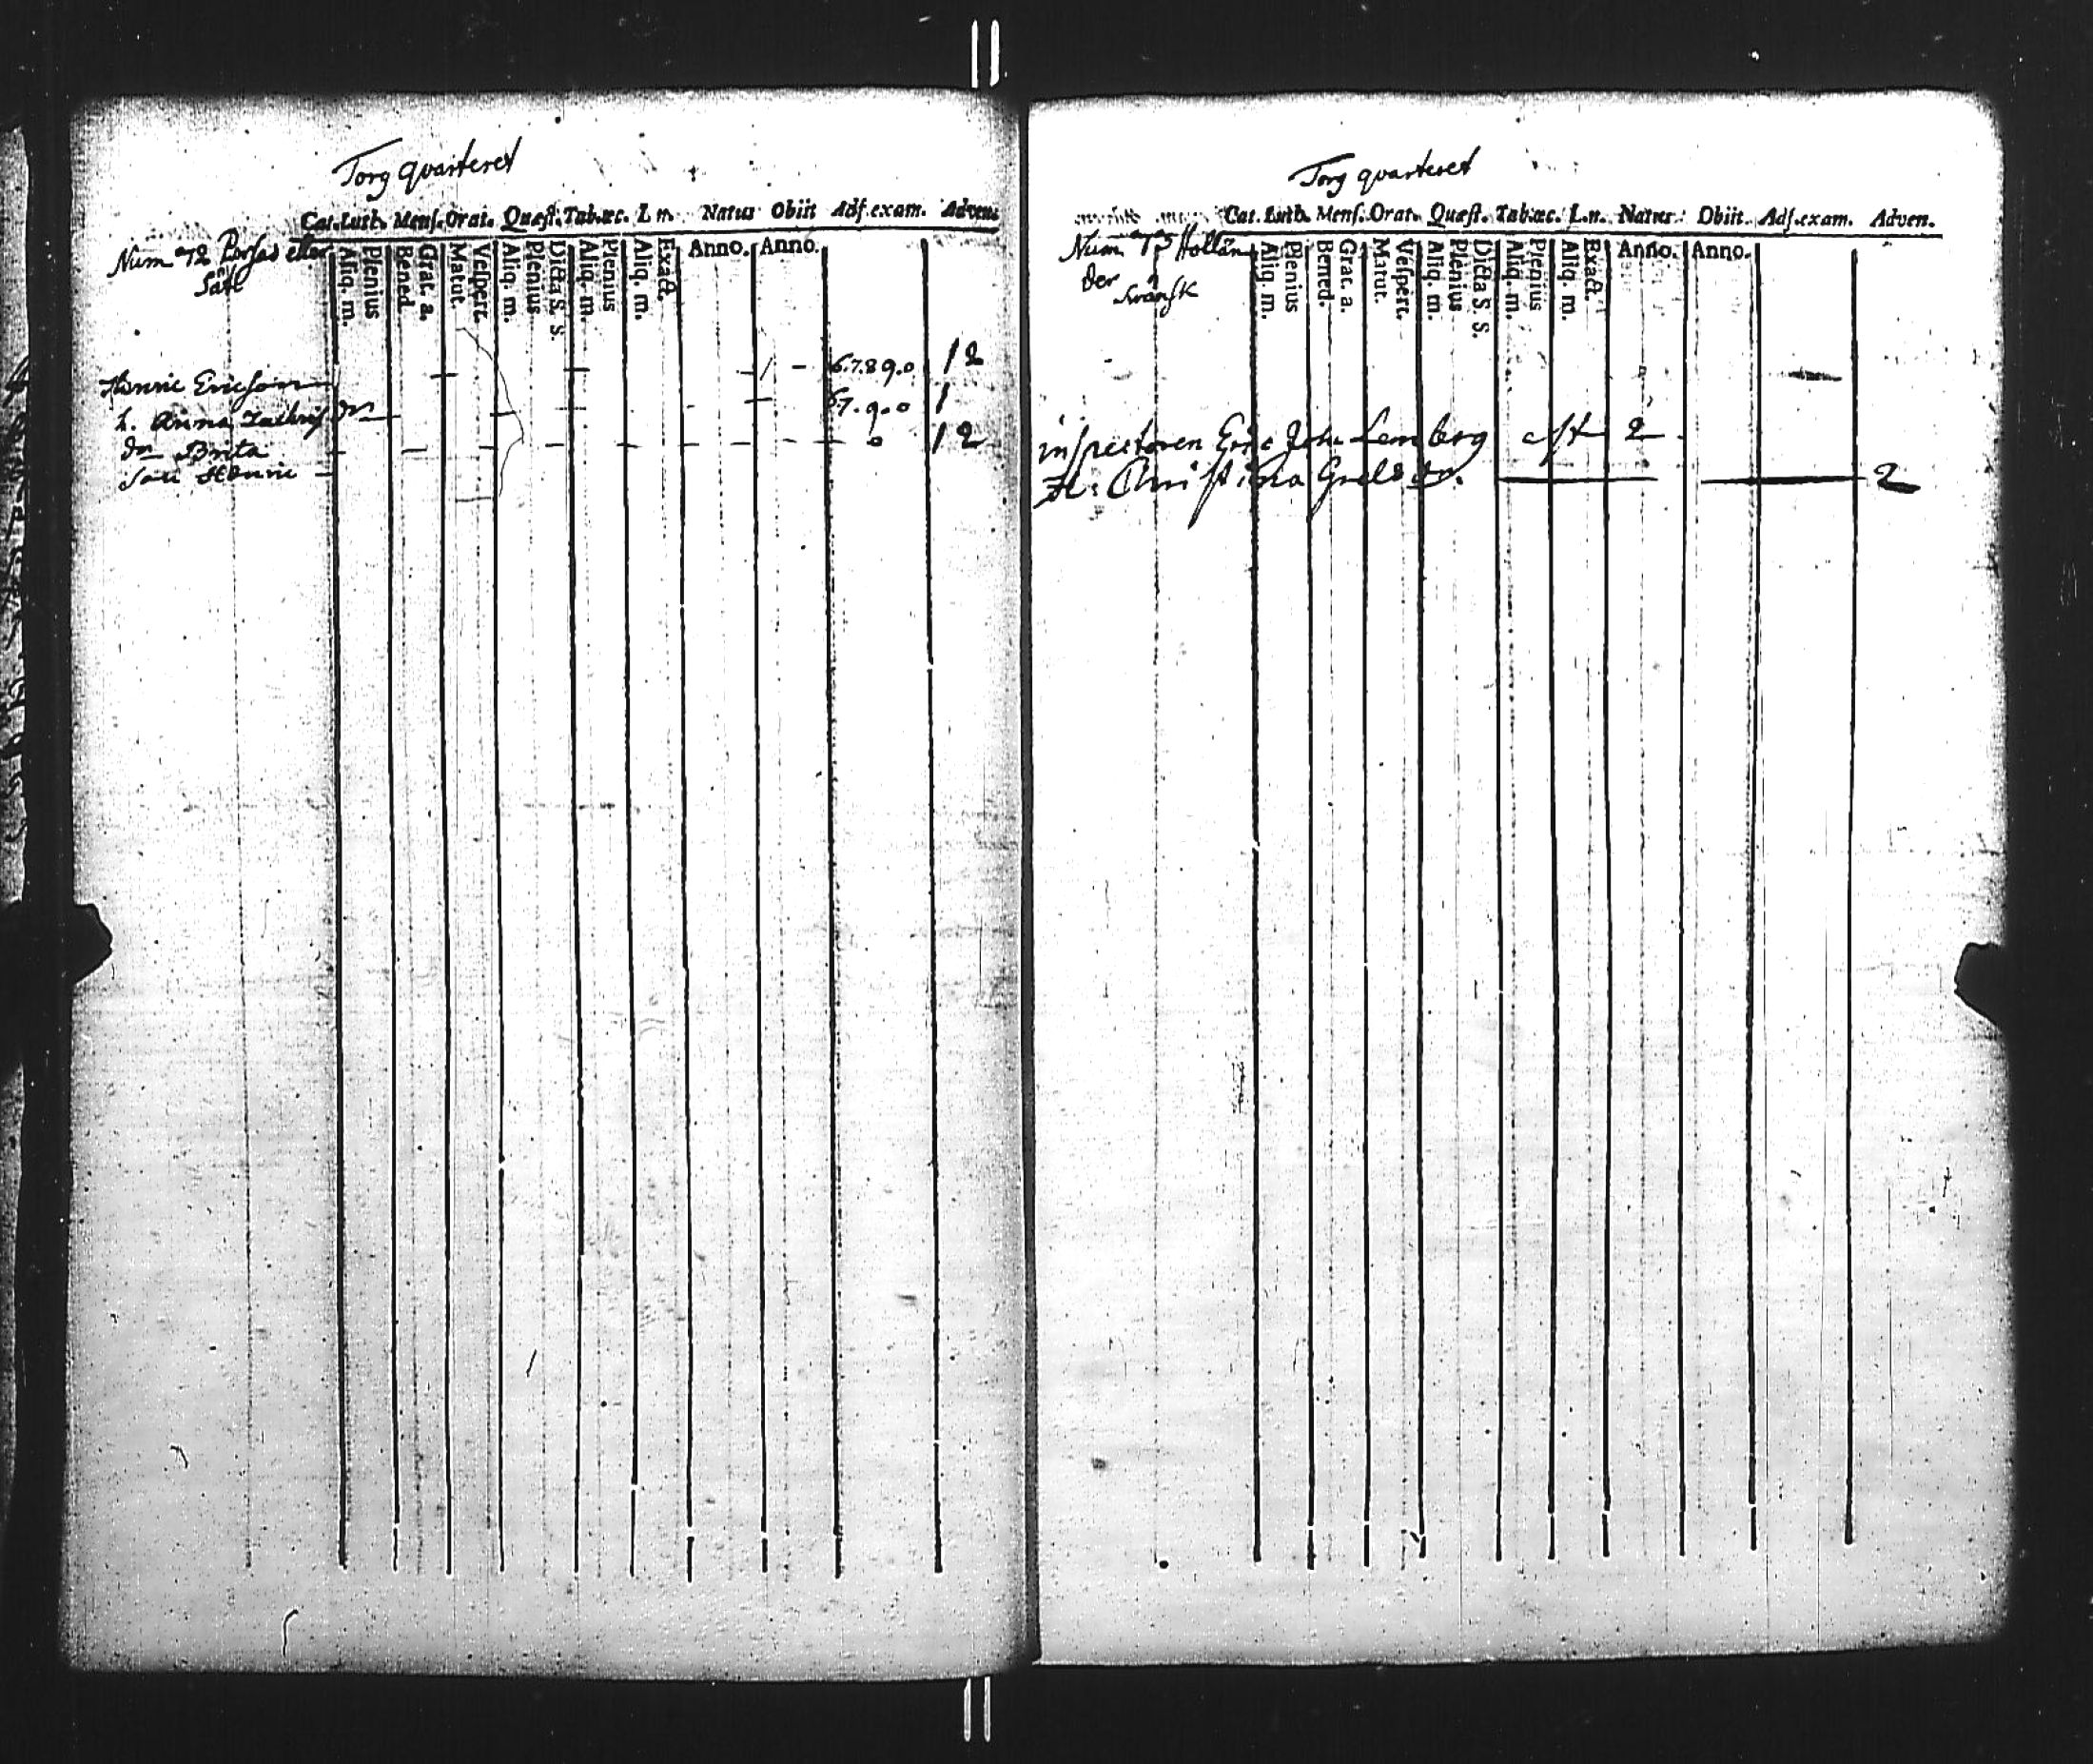 Torg quarteret
Cat. Luth. Mens. Orat. Quæst. Tab. œc. L. n. Natus Obiit Adf. exam. Adven.
Num 72 Porsas eller
Aliq. m. Plenius Bened. Grat. a. Matut. Vespert. Aliq. m. Plenius Dicta S. S. Aliq. m. Plenius Aliq. m. Exact. Anno. Anno.
Henric Ericsson 6.7.8 9.0 12
h. Anna dr 7.9.0 1
dr Brita 0 12
Henric
Torg quarteret
Cat. Luth. Mens. Orat. Quæst. Tab. œc. L. n. Natus Obiit. Adf. exam. Adven.
Num 73 Hollän
der
Aliq. m. Plenius Bened. Grat. a. Matut. Vespert. Aliq. m. Plenius Dicta S. S. Aliq. m. Plenius Aliq. m. Exact. Anno. Anno.
inspectoren Eric Joh. Lemberg 2
H: Christina Grels dr. 2